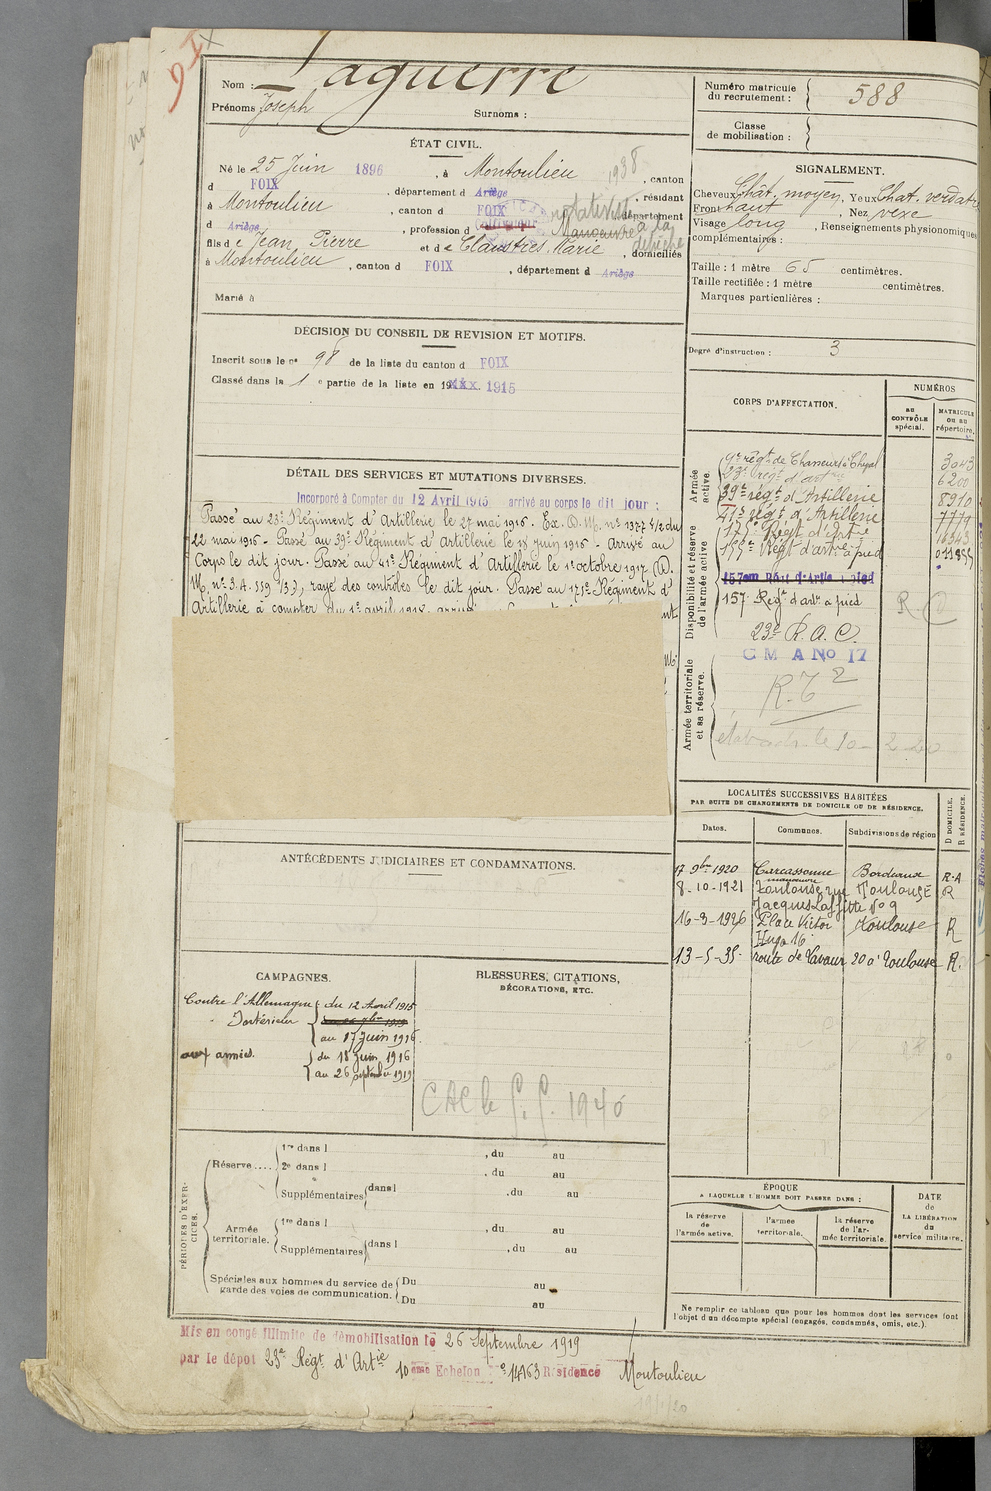 Nom : Laguerre
Prénoms : Joseph
Surnoms :
Numéro matricule du recrutement : 588
Classe de mobilisation :
ÉTAT CIVIL.
Né le 25 Juin 1896, à Montoulieu, canton
d FOIX, département d Ariège, résidant
à Montoulieu, canton d FOIX, département
d Ariège, profession d cultivateur Manoeuvre
fils d e Jean Pierre et d e Claustres Marie, domiciliés
à Montoulieu, canton d FOIX, département d Ariège
Marié à
1938
à la
SIGNALEMENT.
Cheveux Chât. moyen, Yeux Chat. verdatre
Front haut, Nez vexe
Visage long, Renseignements physionomiques
complémentaires :
Taille : 1 mètre 65 centimètres.
Taille rectifiée : 1 mètre centimètres.
Marques particulières :
Degré d'instruction : 3
DÉCISION DU CONSEIL DE REVISION ET MOTIFS.
Inscrit sous le n° 98 de la liste du canton d FOIX
Classé dans la 1 e partie de la liste en 1915
DÉTAIL DES SERVICES ET MUTATIONS DIVERSES.
Incorporé à Compter du 12 Avril 1915 arrivé au corps le dit jour :
Passé au 23e Régiment d'Artillerie le 27 mai 1916. Ex. D.M. n° 1377 4/2 du
22 mai 1916 - Passé au 39e Régiment d'Artillerie le 18 juin 1916 - Arrivé au
Corps le dit jour. Passé au 41e Régiment d'Artillerie le 1er octobre 1917 (D.
M. n° 3.A. 559 /3), rayé des contrôles le dit jour. Passé au 175e Régiment d'
Artillerie à compter du 1er avril 1918
CORPS D'AFFECTATION.
NUMÉROS
AU CONTRÔLE spécial.
MATRICULE OU AU répertoire.
Armée active.
Disponibilité et réserve de l'armée active
Armée territoriale et sa réserve.
9e régt de Chasseurs à Cheval 3043
23e régt d'artie 6200
39e régt d'Artillerie 8910
41e régt d'Artillerie 7779
175e Régt d'Artie
155e Régt d'artie à pied
157em Rég d'Artie à pied
157 Régt d'artie à pied R C
23e R.A.C.
C M A No 17
R.T 2
le 10 - 2 - 20
LOCALITÉS SUCCESSIVES HABITÉES
PAR SUITE DE CHANGEMENTS DE DOMICILE OU DE RÉSIDENCE.
Dates. Communes. Subdivisions de région D DOMICILE. R RÉSIDENCE.
17 9bre 1920 Carcassonne Bordeaux R.A
manoeuvre
8-10-1921 Toulouse rue TOULOUSE R
Jacques Laffitte No 9
16-3-1926 Place Victor Toulouse R
Hugo 16
13-5-35. route de Lavaur 20 à Toulouse R.
ANTÉCÉDENTS JUDICIAIRES ET CONDAMNATIONS.
CAMPAGNES.
Contre l'Allemagne
Intérieur
du 12 Avril 1915
au 17 Juin 1916
aux armées.
du 18 Juin 1916
au 26 septembre 1919
BLESSURES, CITATIONS,
DÉCORATIONS, ETC.
1940
PÉRIODES D'EXERCICES.
Réserve.... 1re dans l , du au
2e dans l , du au
Supplémentaires dans l , du au
Armée territoriale. 1re dans l , du au
Supplémentaires dans l , du au
Spéciales aux hommes du service de garde des voies de communication. Du au
Du au
ÉPOQUE
A LAQUELLE L'HOMME DOIT PASSER DANS :
la réserve de l'armée active.
l'armée territoriale.
la réserve de l'armée territoriale.
DATE de LA LIBÉRATION du service militaire.
Ne remplir ce tableau que pour les hommes dont les services font
l'objet d'un décompte spécial (engagés, condamnés, omis, etc.).
Mis en congé illimité de démobilisation le 26 Septembre 1919
par le dépôt 23e Régt d'Artie 10 eme Echelon 14163 Résidence Montoulieu